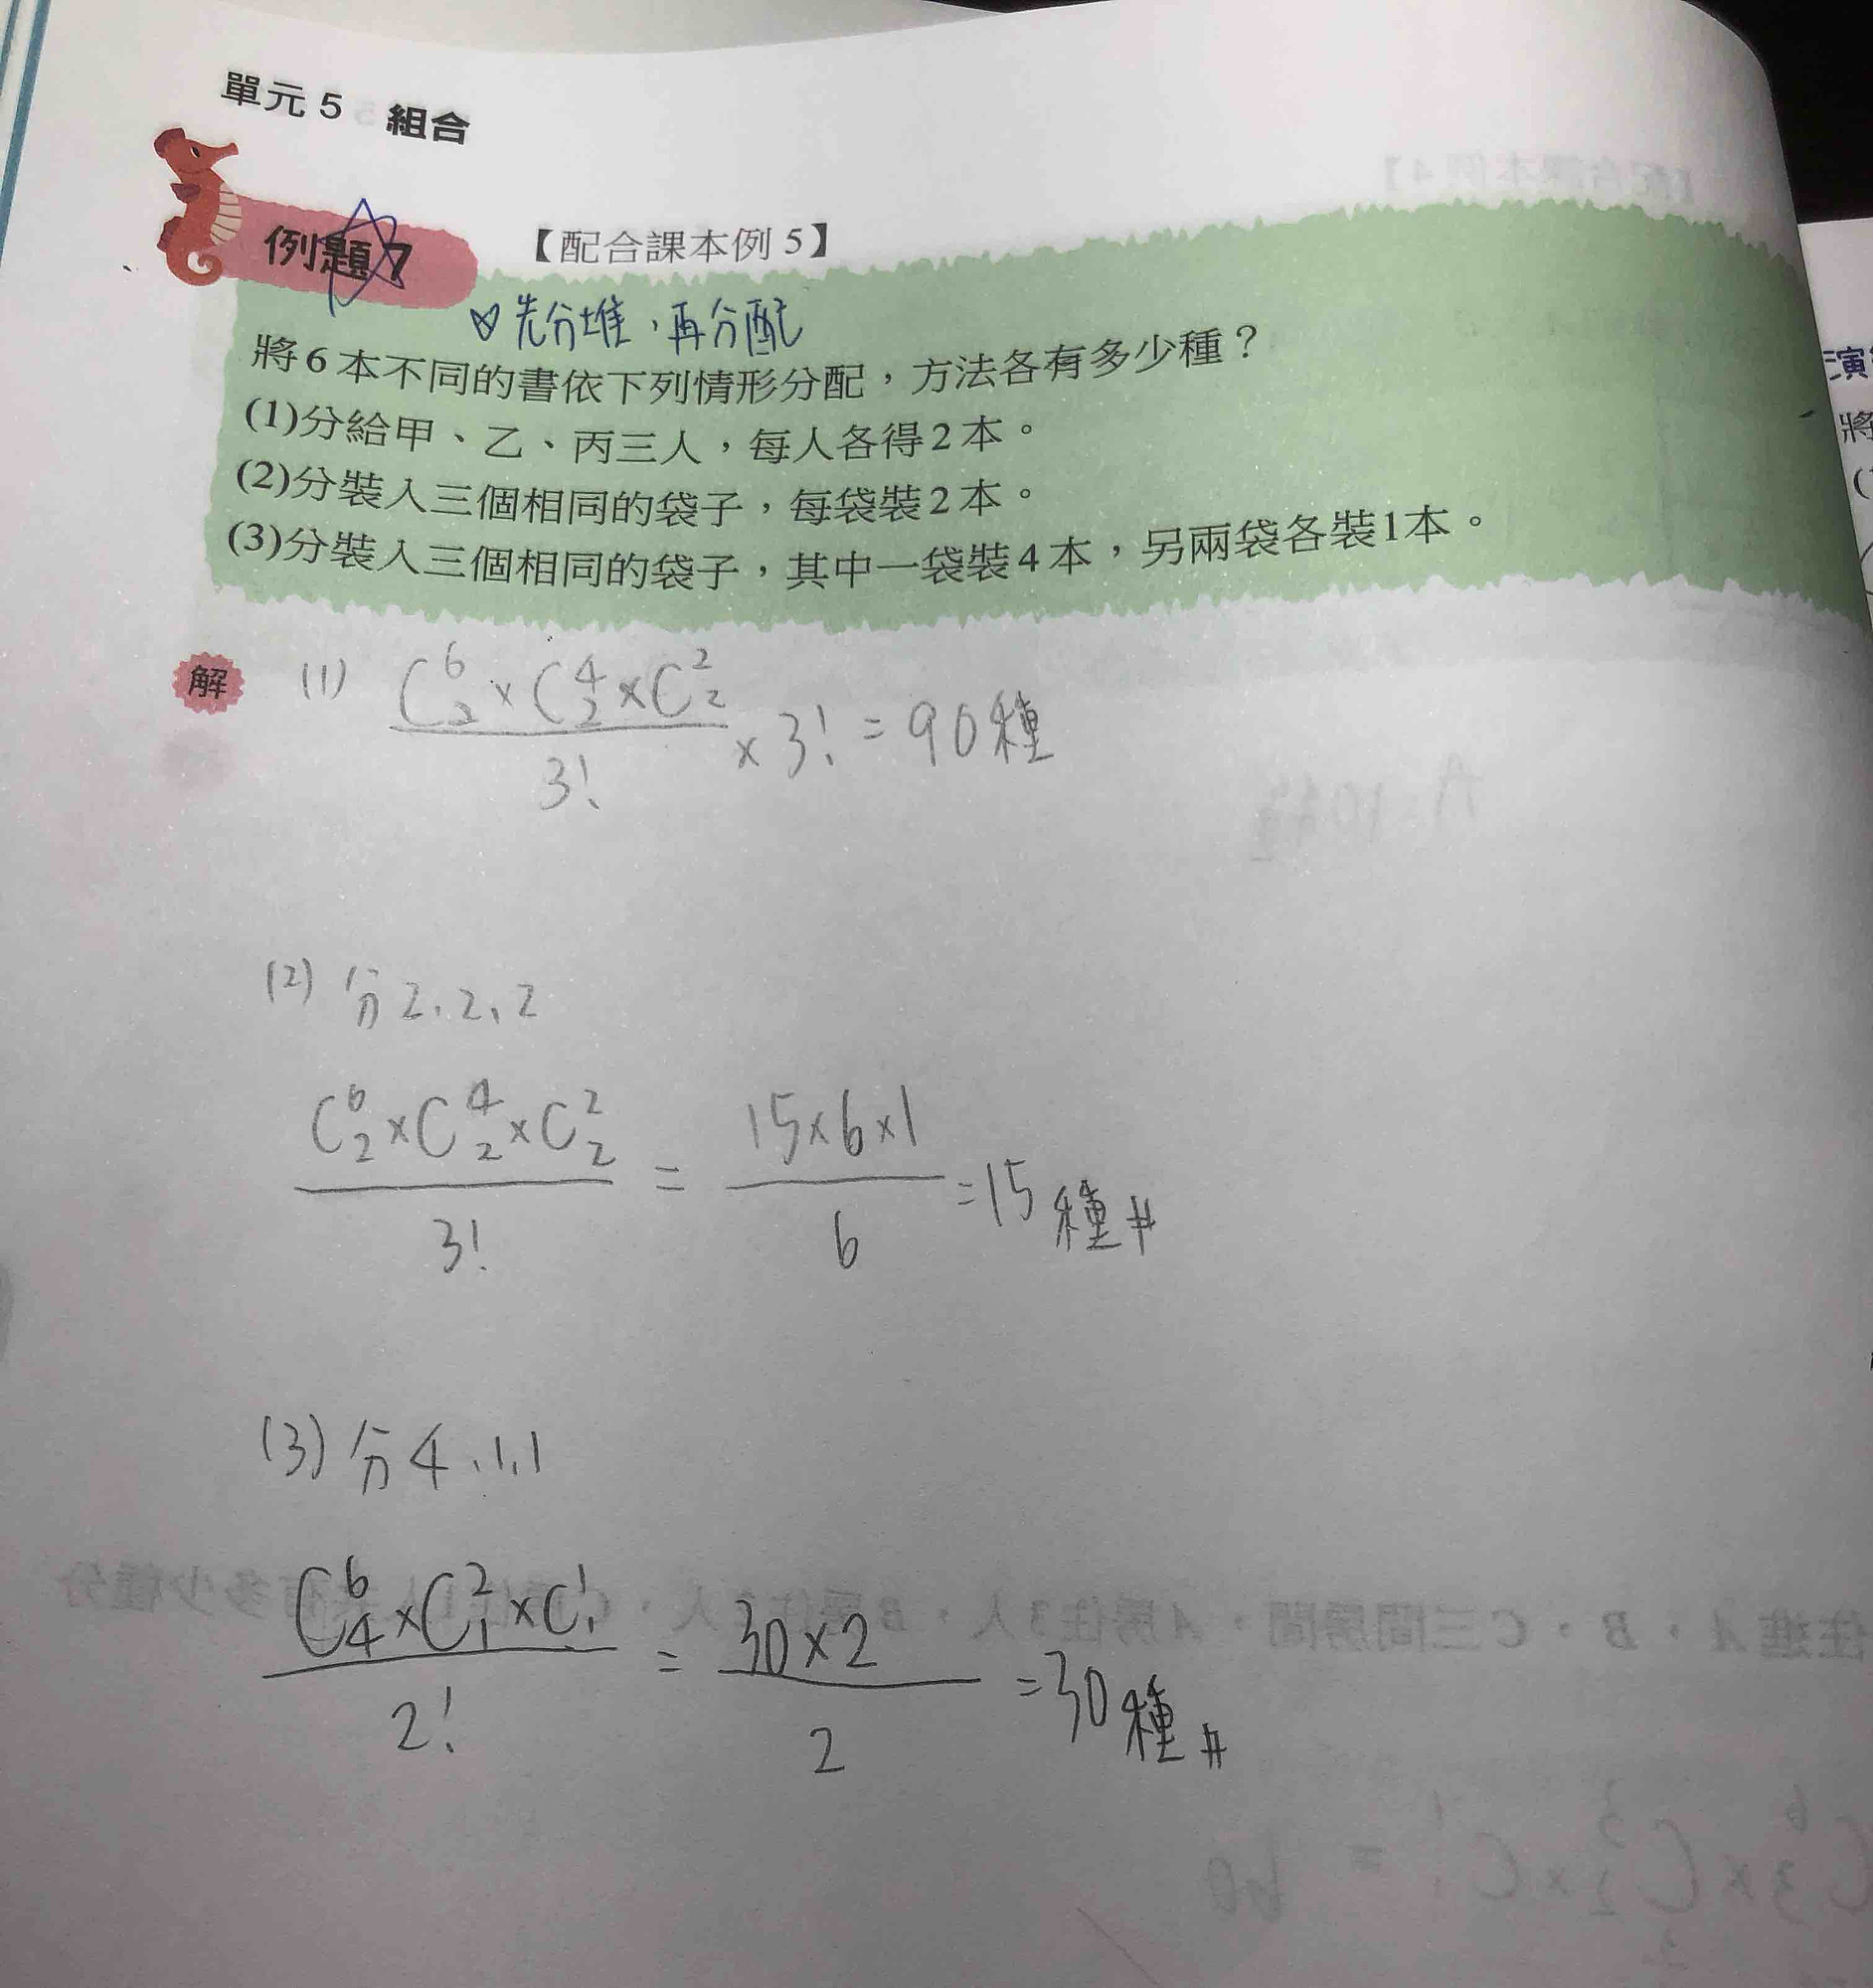 單元5 組合
例題7 【配合課本例5】
先分堆,再分配
將6本不同的書依下列情形分配,方法各有多少種?
(1)分給甲、乙、丙三人,每人各得2本。
(2)分裝入三個相同的袋子,每袋裝2本。
(3)分裝入三個相同的袋子,其中一袋裝4本,另兩袋各裝1本。
解 (1) C⁶₂×C⁴₂×C²₂ / 3! ×3! = 90種
(2) 分2、2、2
C⁶₂×C⁴₂×C²₂ / 3! = 15×6×1 / 6 = 15種#
(3) 分4、1、1
C⁶₄×C²₁×C¹₁ / 2! = 30×2 / 2 = 30種#